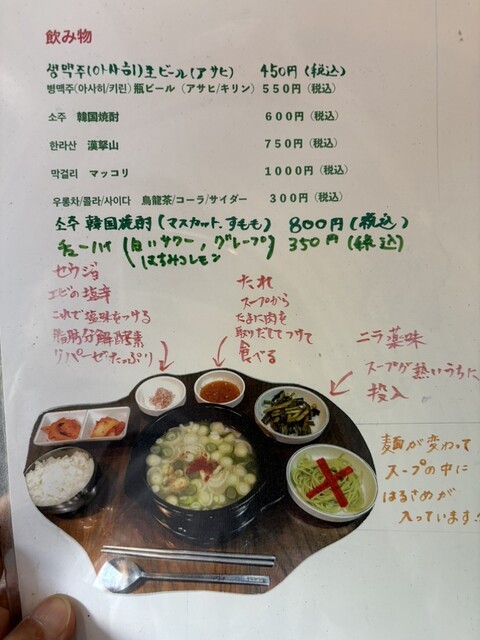 飲み物
생맥주(아사히)生ビール(アサヒ) 450円(税込)
병맥주(아사히/키린)瓶ビール(アサヒ/キリン) 550円(税込)
소주 韓国焼酎 600円(税込)
한라산 漢拏山 750円(税込)
막걸리 マッコリ 1000円(税込)
우롱차/콜라/사이다 烏龍茶/コーラ/サイダー 300円(税込)
소주 韓国焼酎(マスカット.すもも) 800円(税込)
チューハイ(白いサワー,グレープフ 350円(税込)
はちみつレモン)
セウジョ
エビの塩辛
これで塩味をつける
脂肪分解酵素
リパーゼたっぷり
たれ
スープから
たまに肉を
取りだしてつけて
食べる
ニラ薬味
スープが熱いうちに
投入
麺が変わって
スープの中に
はるさめが
入っています!